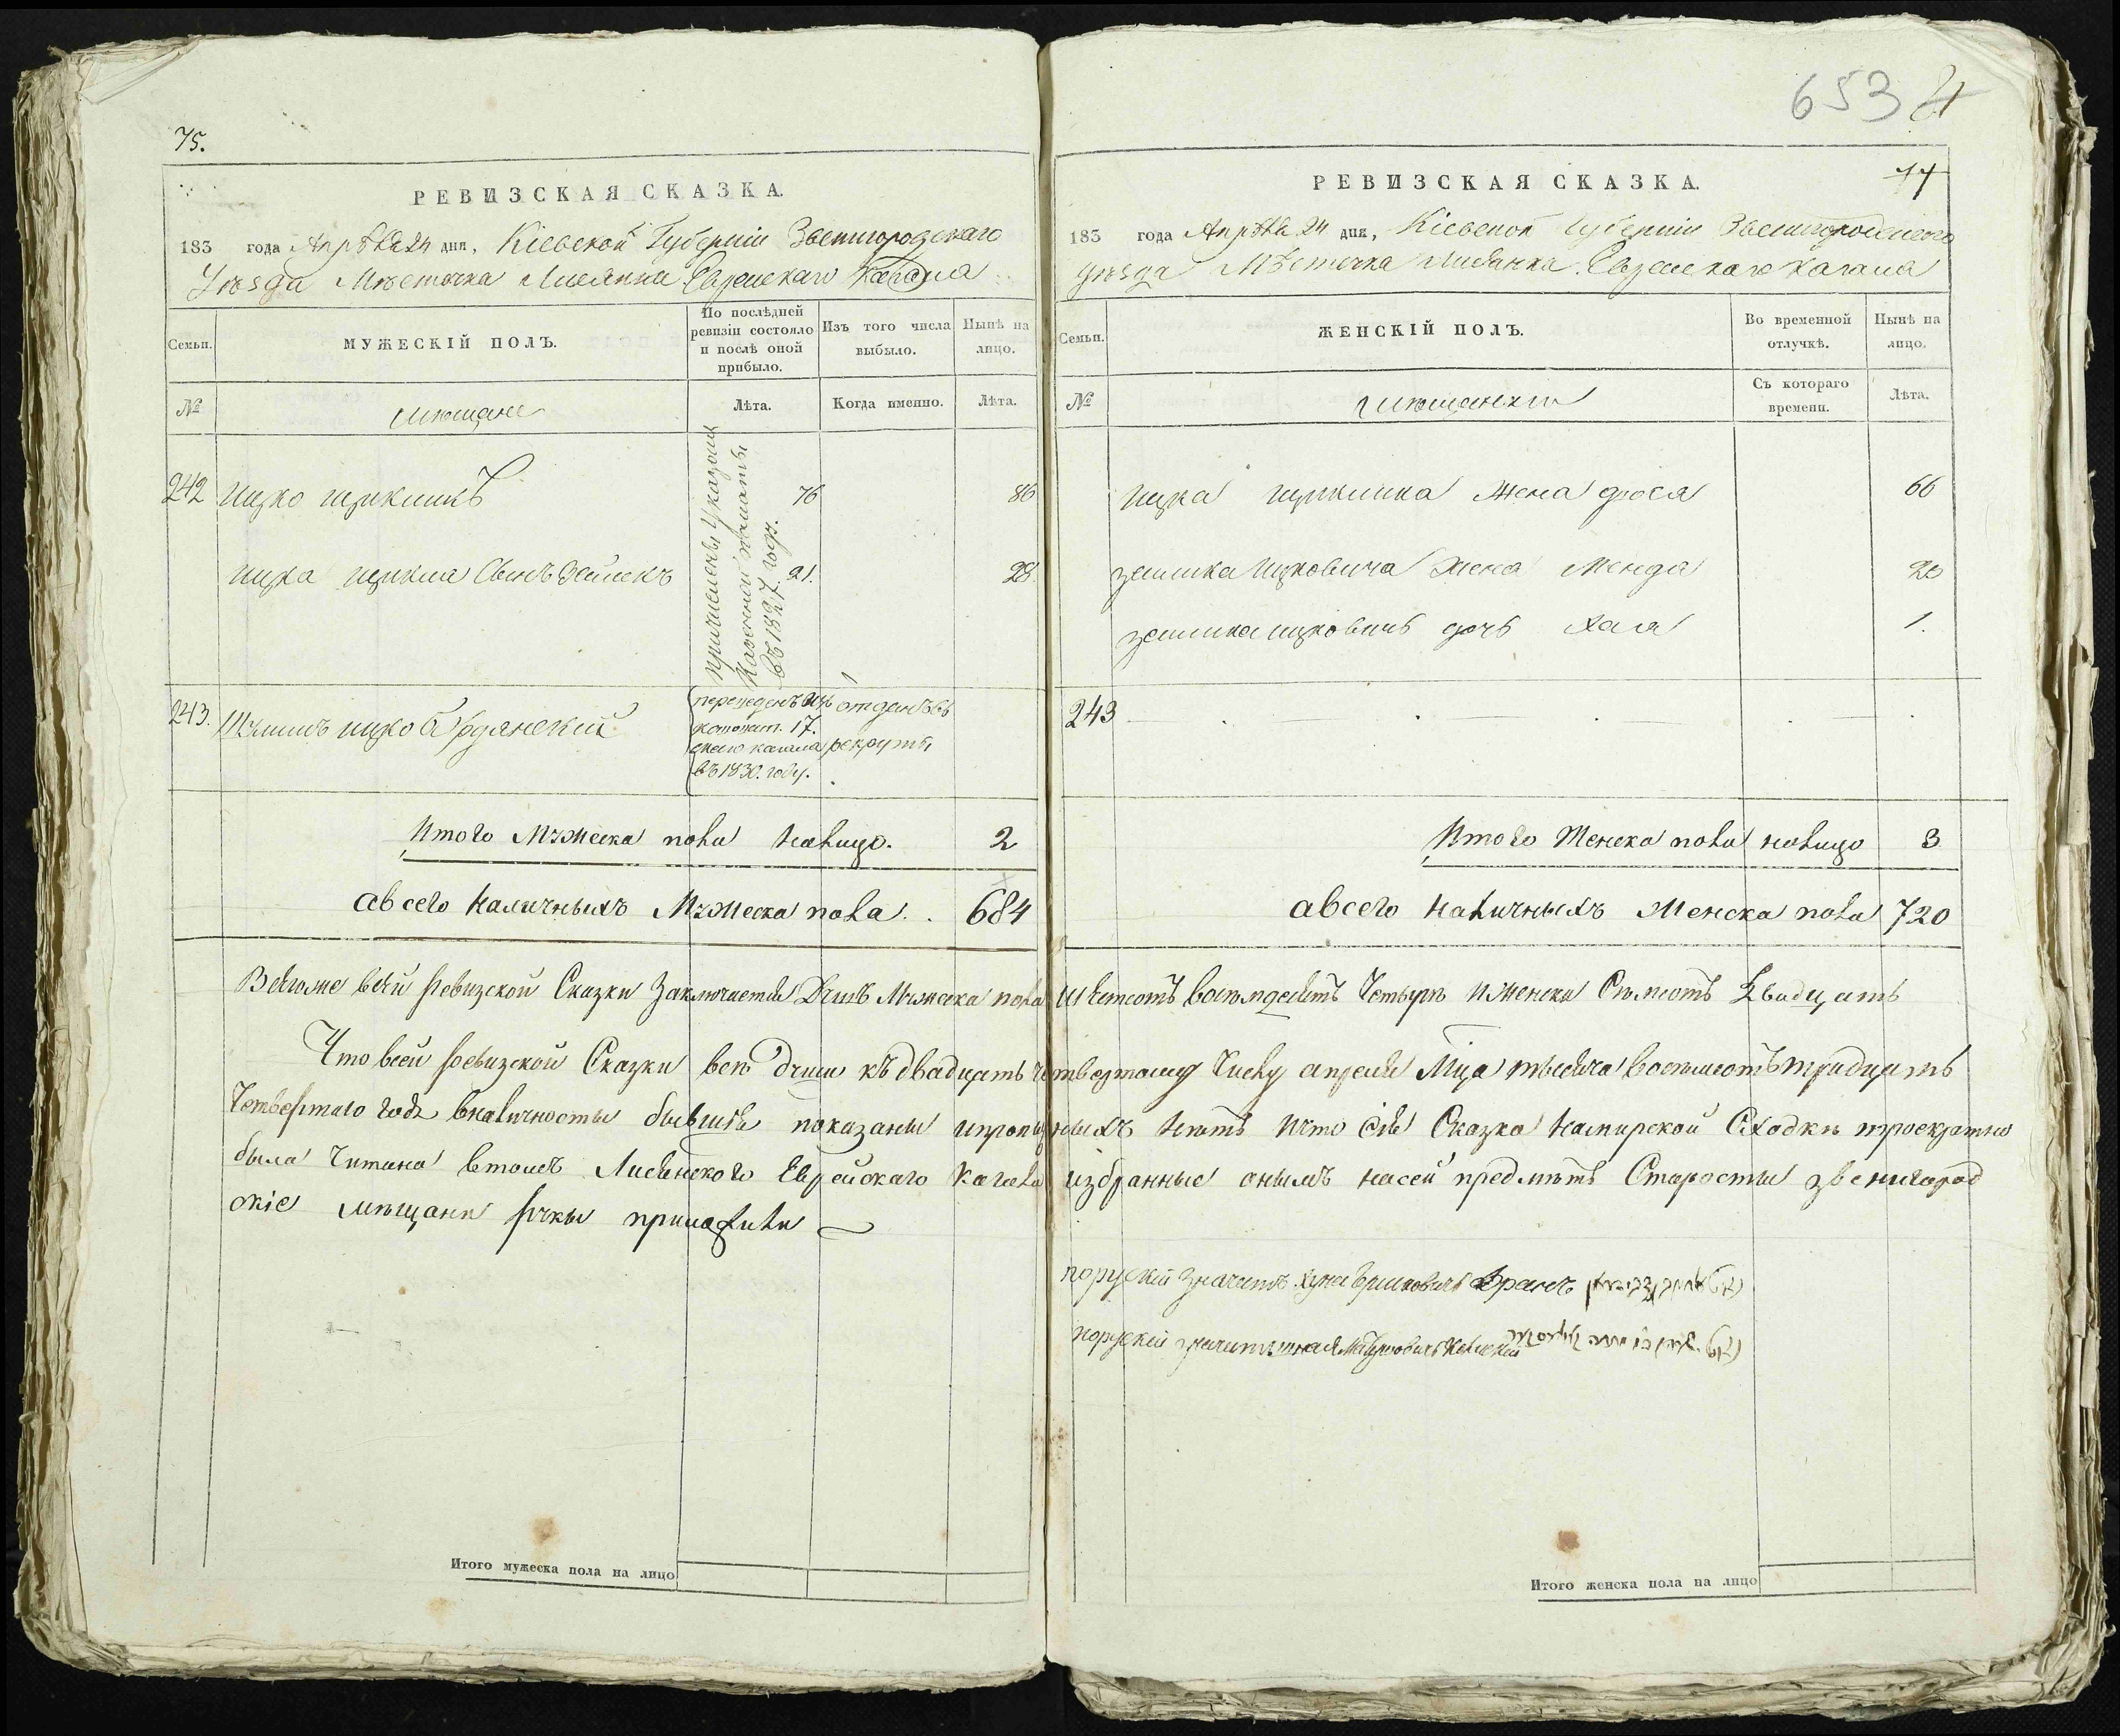 75.
РЕВИЗСКАЯ СКАЗКА.
183 года Апрѣля 24 дня, Кіевской Губерніи Звенигородскаго
Уѣзда Мѣстечка Лисянки Еврейскаго Кагала
Семьи.
МУЖЕСКІЙ ПОЛЪ.
По послѣдней ревизіи состояло и послѣ оной прибыло.
Изъ того числа выбыло.
Нынѣ на лицо.
№
мѣщане
Лѣта.
Когда именно.
Лѣта.
причислены Указомъ
Казенной палаты
въ 1827 годе.
242 Ицко 76 86
Ицка Сынъ Зейликъ 21. 28
243. Шлиомъ Ицко
переведенъ изъ
17.
скаго кагала
въ 1830. году.
отданъ въ
рекруты
Итого Мужеска пола налицо. 2
а всего наличныхъ Мужеска пола . . 684
653
РЕВИЗСКАЯ СКАЗКА.
183 года Апрѣля 24 дня, Кіевской Губерніи Звенигородскаго
Уѣзда Мѣстечка Лисянка Еврейскаго кагала
Семьи.
ЖЕНСКІЙ ПОЛЪ.
Во временной отлучкѣ.
Нынѣ на лицо.
№
мѣщанки
Съ котораго времени.
Лѣта.
Ицка жена фрося 66
зелика Ицковича жена Менда 20
зелика ицковича дочь Хая 1.
243
Итого Женска пола налицо 3
а всего наличныхъ Женска пола 720
Всего же въ сей Ревизской Сказки Заключается Душъ Мужеска пола шестсотъ восемдесятъ Четыре и женска Семсотъ Двадцать
Что въ сей Ревизской Сказки все души къ двадцать четвертому Числу апреля Мца тысяча восемсотъ тридцать
Четвертаго года в наличносты бывшие показаны и пропущеныхъ нетъ и что сія Сказка на мирской Сходкѣ троекратно
была Читана в томъ Лисянского Еврейскаго Кагала избранные онымъ на сей предметъ Старосты звенигород
скіе мѣщане руки приложили
по руский значитъ Бранъ
по руский значитъ
Итого мужеска пола на лицо
Итого женска пола на лицо